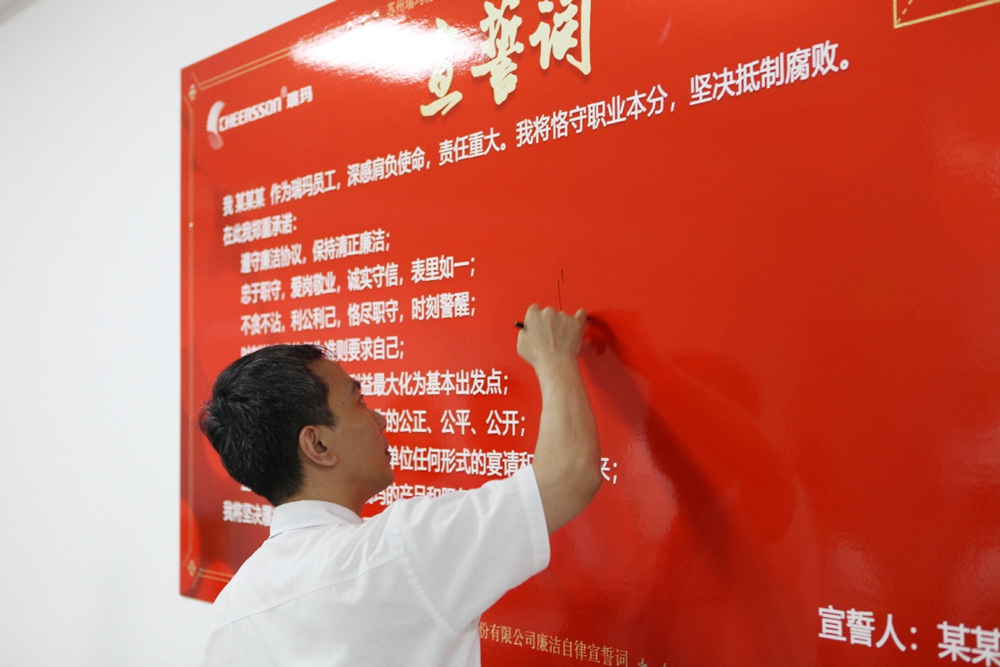 苏州瑞玛
宣誓词
CHEERSSON® 瑞玛
我 某某某 作为瑞玛员工，深感肩负使命，责任重大。我将恪守职业本分，坚决抵制腐败。
在此我郑重承诺：
遵守廉洁协议，保持清正廉洁；
忠于职守，爱岗敬业，诚实守信，表里如一；
不贪不沾，利公利己，恪尽职守，时刻警醒；
准则要求自己；
益最大化为基本出发点；
的公正、公平、公开；
单位任何形式的宴请和 来；
的产品和
我将坚决
宣誓人：某某
份有限公司廉洁自律宣誓词